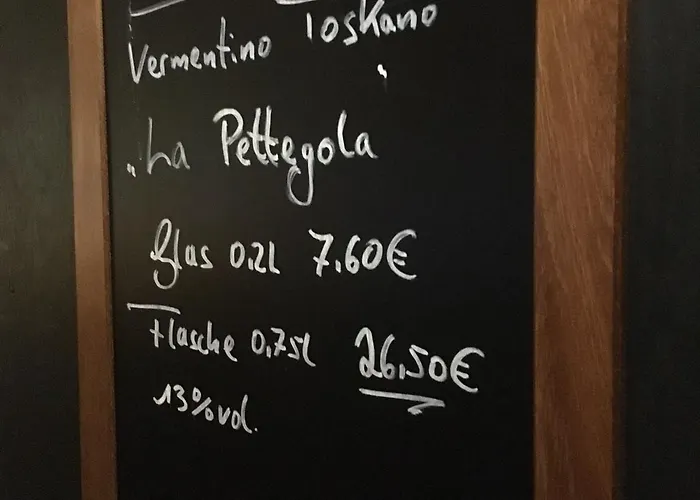 Vermentino Toskano
„La Pettegola"
Glas 0,2l 7,60€
Flasche 0,75l 26,50€
13%vol.